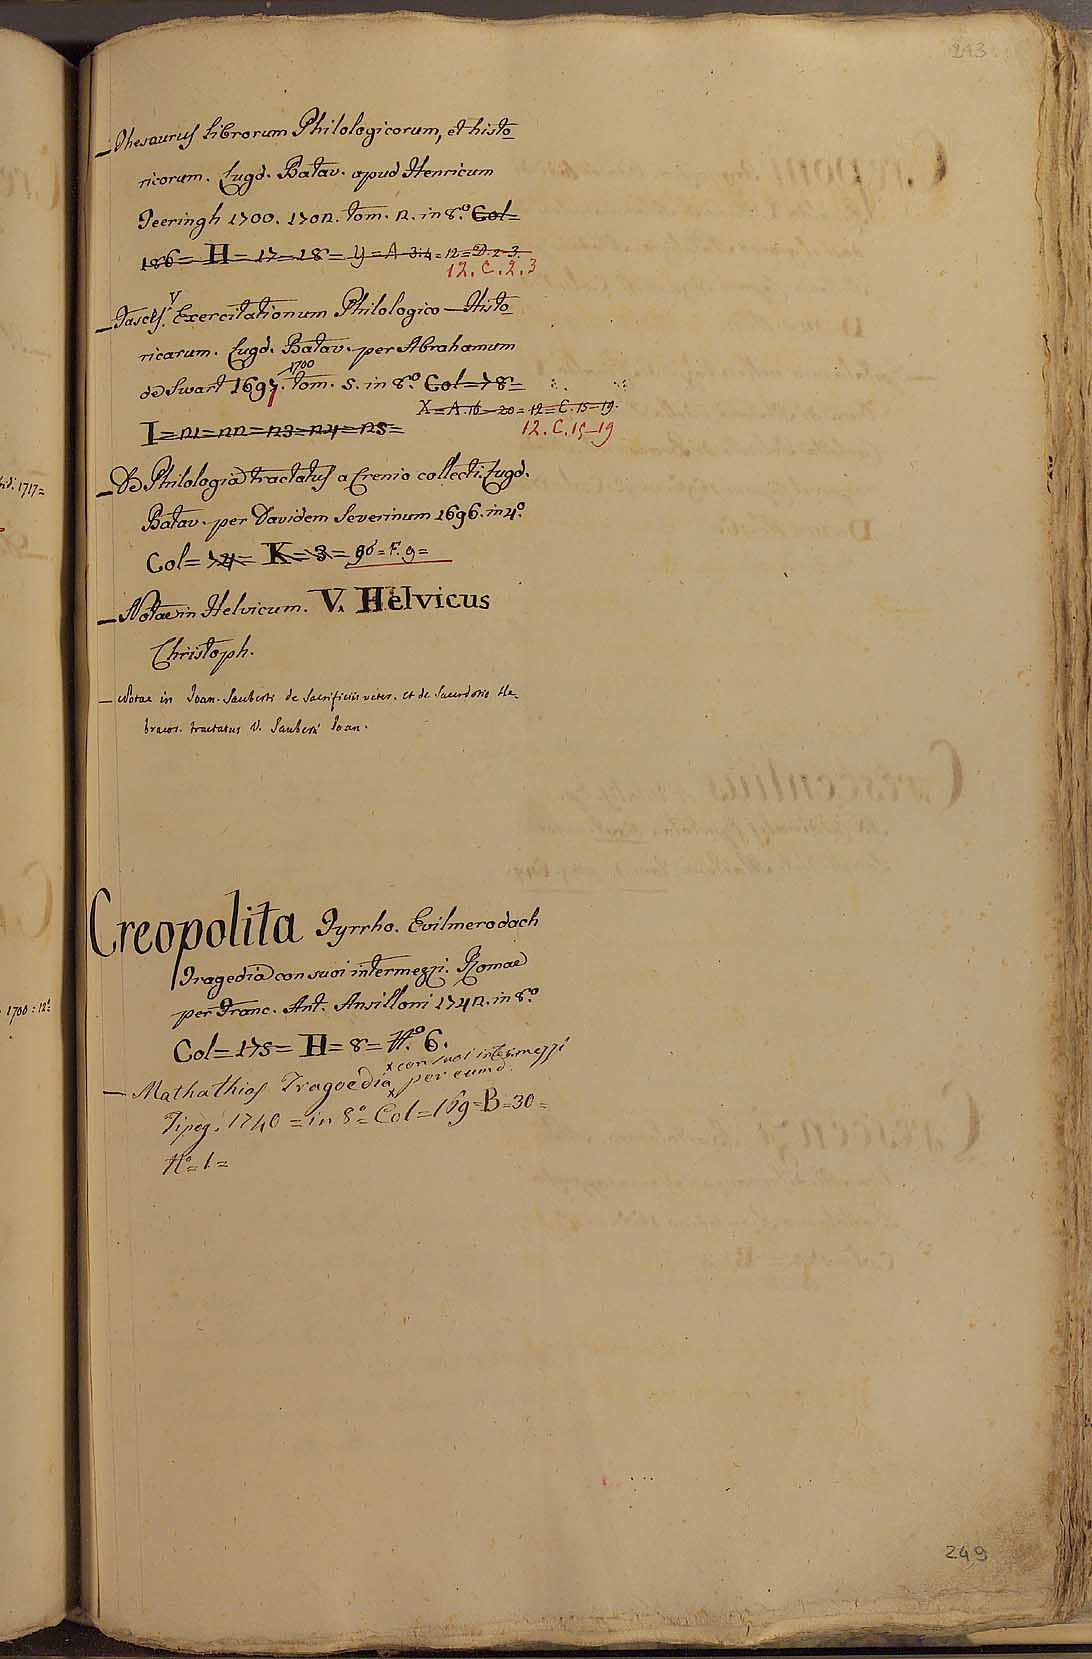 243
— Thesaurus librorum Philologicorum, et histo
ricorum. Lugd. Batav. apud Henricum
Teeringh 1700. 1702. tom. 2. in 8.º Col=
186= H= 17=18= Y= A 3:4 = 12= D. 2-3.
12. C. 2. 3
— Fasces. V Exercitationum Philologico-Histo
ricarum. Lugd. Batav. per Abrahamum
1700
de Swart 1697. tom. 5. in 8.º Col= 78=
X= A. 16-20= 12= C. 15-19.
I= 21= 22= 23= 24= 25=
12. C. 15-19
— De Philologia tractatus a Crenio collecti. Lugd.
Batav. per Davidem Severinum 1696. in 4.º
Col= 74= K= 3= 96= F. 9=
— Notae in Helvicum. V. Helvicus
Christoph.
— Notae in Joan. Sauberti de Sacrificiis veter. et de Sacerdotio He-
braeor. tractatus V. Saubert Joan.
Creopolita Pyrrho. Evilmerodach
Tragedia con suoi intermezzi. Romae
per Franc. Ant. Ansilloni 1742. in 8.º
Col= 175= H= 8= Nº 6.
x con suoi intermezzi
— Mathathias Tragoedia x per eumd.
Tipog. 1740 = in 8º= Col= 169= B= 30=
Nº= 1=
249
1717=
1700: 12º